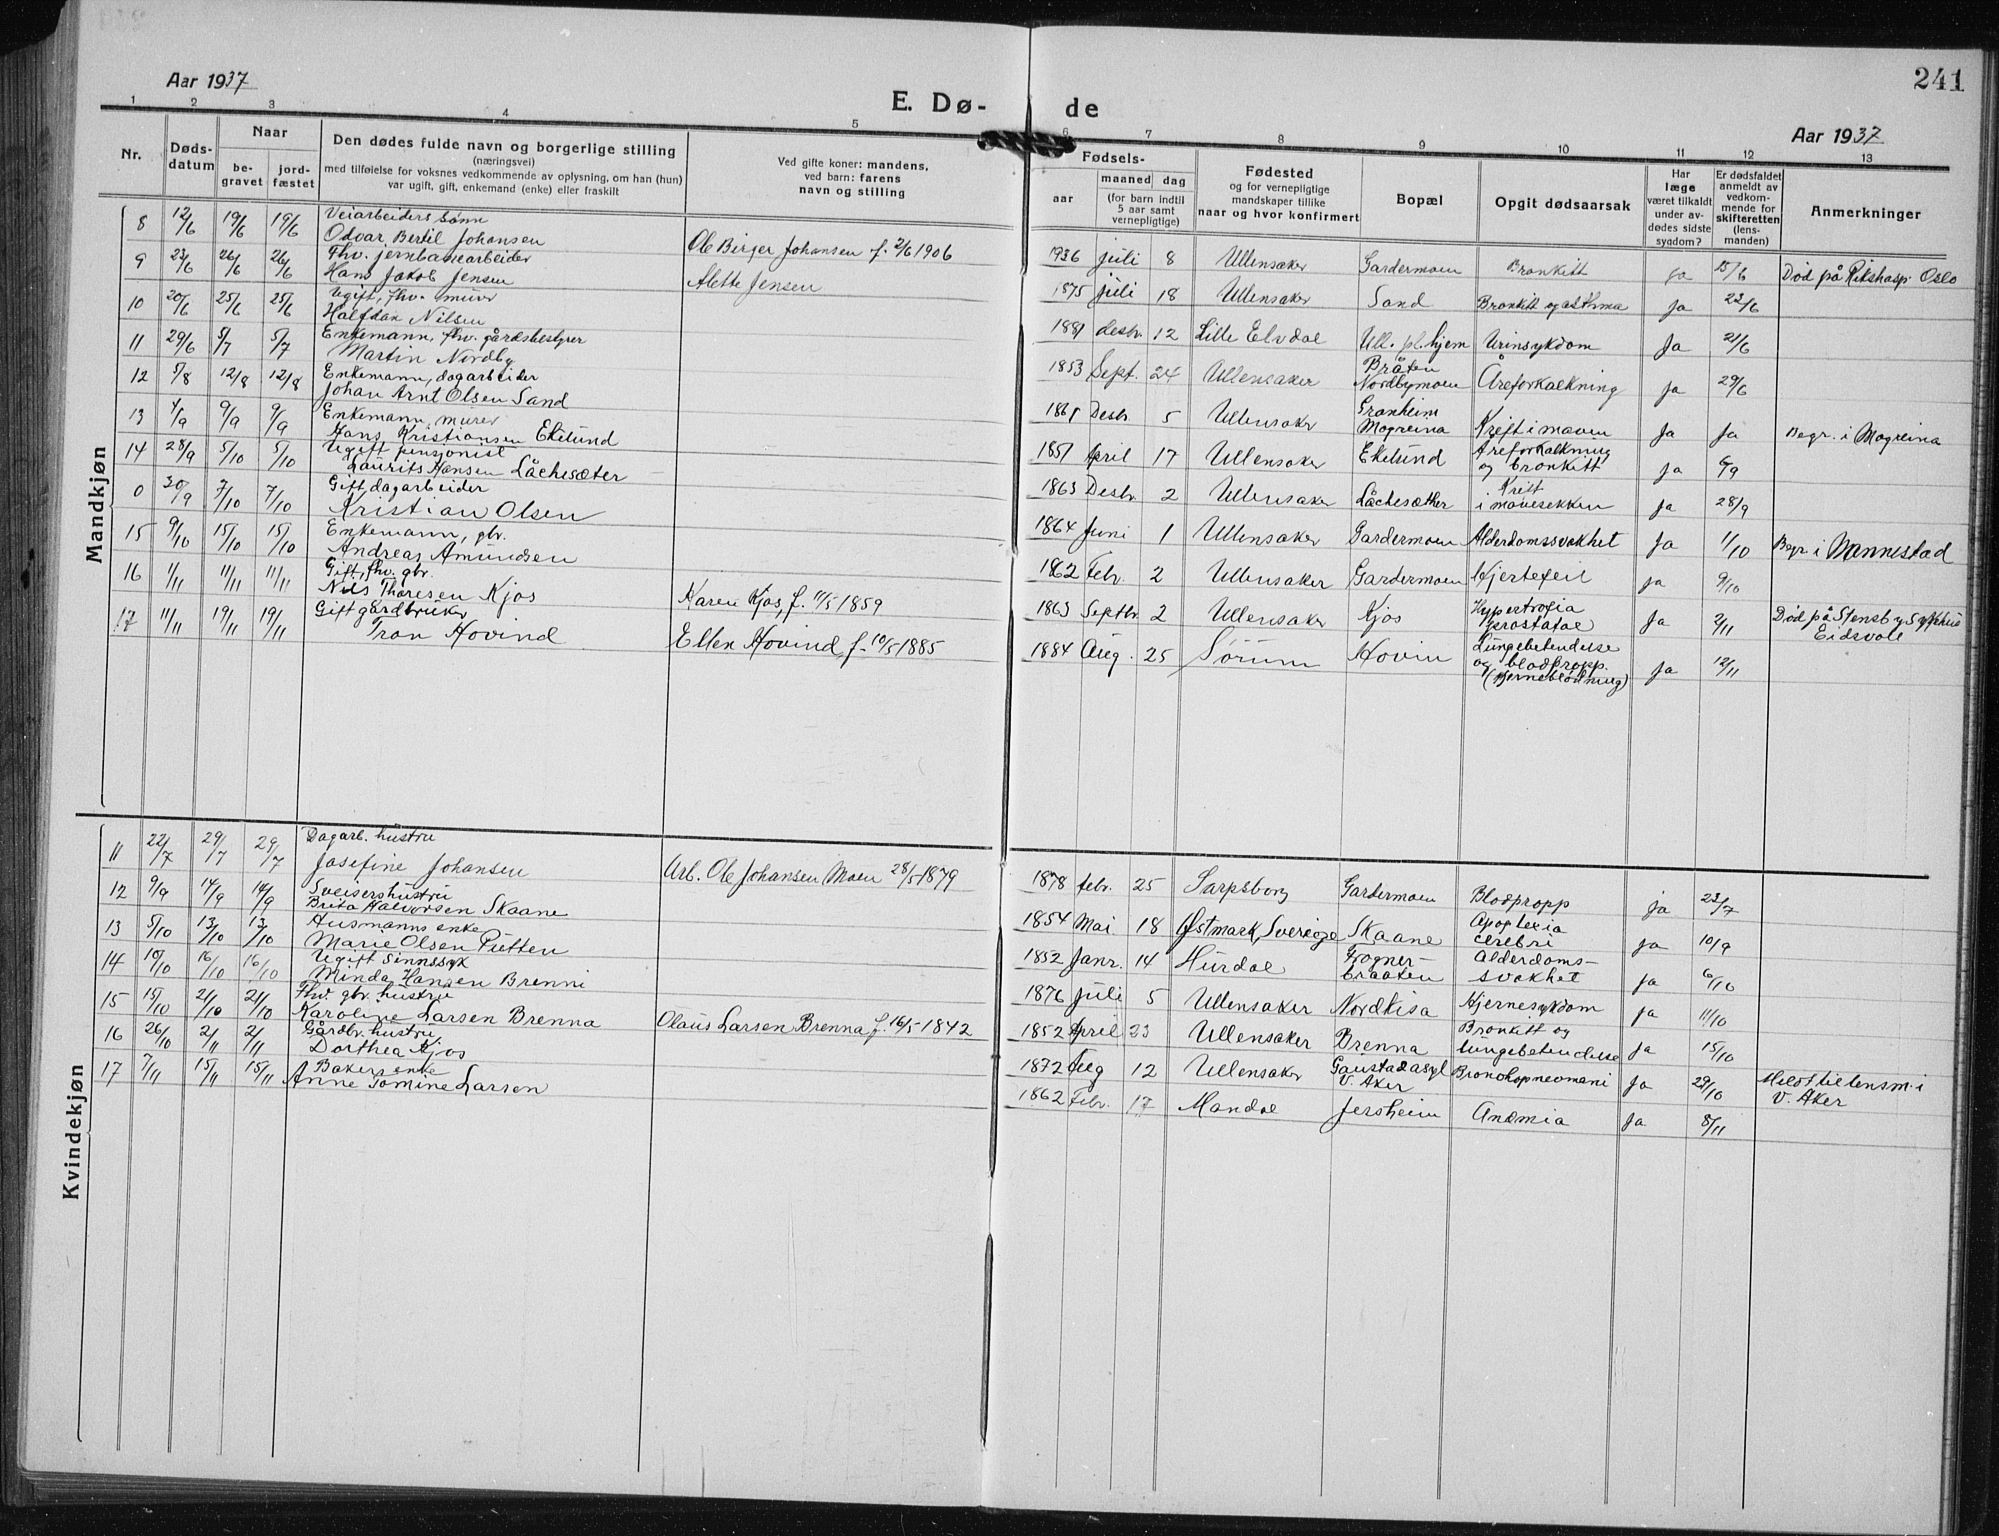 241
Aar 1937
E. Dø- de
Aar 1937
1 2 3 4 5 6 7 8 9 10 11 12 13
Nr.
Døds-
datum
Naar
be-
gravet
jord-
fæstet
Den dødes fulde navn og borgerlige stilling
(næringsvei)
med tilføielse for voksnes vedkommende av oplysning, om han (hun)
var ugift, gift, enkemand (enke) eller fraskilt
Ved gifte koner: mandens,
ved barn: farens
navn og stilling
Fødsels-
aar
maaned dag
(for barn indtil
5 aar samt
vernepligtige)
Fødested
og for vernepligtige
mandskaper tillike
naar og hvor konfirmert
Bopæl
Opgit dødsaarsak
Har
læge
været tilkaldt
under av-
dødes sidste
sygdom?
Er dødsfaldet
anmeldt av
vedkom-
mende for
skifteretten
(lens-
manden)
Anmerkninger
Mandkjøn
8 12/6 19/6 19/6 Veiarbeiders sønn
Odvar Bertil Johansen Ole Birger Johansen f. 2/6 1906 1936 juli 8 Ullensaker Gardermoen Bronkitt ja 15/6 Død på Rikshosp. Oslo
9 23/6 26/6 26/6 Fhv. jernbanearbeider
Hans Jakob Jensen Alette Jensen 1875 juli 18 Ullensaker Sand Bronkitt og asthma ja 23/6
10 20/6 25/6 25/6 Ugift, fhv. murer
Halfdan Nilsen 1881 desbr. 12 Lille Elvdal Ull. pl.hjem Urinsykdom Ja 21/6
11 29/6 5/7 5/7 Enkemann, fhv. gårdsbestyrer
Martin Nordby 1853 Sept. 24 Ullensaker Bråten
Nordbymoen Åreforkalkning Ja 29/6
12 5/8 12/8 12/8 Enkemann, dagarbeider
Johan Arnt Olsen Sand 1861 Desbr. 5 Ullensaker Granheim
Mogreina Kreft i maven Ja Ja Begr. i Mogreina
13 4/9 9/9 9/9 Enkemann, murer
Hans Kristiansen Ekelund 1851 April 17 Ullensaker Ekelund Åreforkalkning
og bronkitt Ja 6/9
14 28/9 5/10 5/10 Ugift pensjonist
Laurits Hansen Låchesæter 1863 Desbr. 2 Ullensaker Låchesæther Kreft
i mavesekken Ja 28/9
0 30/9 7/10 7/10 Gift, dagarbeider
Kristian Olsen 1864 Juni 1 Ullensaker Gardermoen Alderdomssvakhet Ja 1/10 Begr. i Nannestad
15 9/10 15/10 15/10 Enkemann, gbr.
Andreas Amundsen 1862 Febr. 2 Ullensaker Gardermoen Hjertefeil Ja 9/10
16 1/11 11/11 11/11 Gift, fhv. gbr.
Nils Thoresen Kjos Karen Kjos, f. 11/5 1859 1863 Septbr. 2 Ullensaker Kjos Hypertrofia
prostatae Ja 2/11 Død på Stensby Sykehus
Eidsvoll
17 11/11 19/11 19/11 Gift gårdbruker
Tron Hovind Ellen Hovind, f. 10/5 1885 1884 Aug. 25 Sørum Hovin Lungebetendelse
og blodpropp.
(hjerneblødning) Ja 12/11
Kvindekjøn
11 22/7 29/7 29/7 Dagarb. hustru
Josefine Johansen Arb. Ole Johansen Moen 28/5 1879 1878 febr. 25 Sarpsborg Gardermoen Blodpropp ja 23/7
12 9/9 14/9 14/9 Sveisershustru
Brita Halvorsen Skaane 1854 Mai 18 Østmark, Sverige Skaane Apoplexia
cerebri Ja 10/9
13 5/10 13/10 13/10 Husmanns enke
Marie Olsen Putten 1852 Janr. 14 Hurdal Frogner-
braaten Alderdoms-
svakhet Ja 6/10
14 10/10 16/10 16/10 Ugift Sinnssyk
Minda Hansen Brenni 1876 Juli 5 Ullensaker Nordkisa Hjernesykdom Ja 11/10
15 15/10 21/10 21/10 Fhv. gbr. hustru
Karoline Larsen Brenna Olaus Larsen Brenna f. 16/5 1842 1852 April 23 Ullensaker Brenna Bronkitt og
lungebetendelse Ja 15/10
16 26/10 2/11 2/11 Gårdbr. hustru
Dorthea Kjos 1872 Aug 12 Ullensaker Gaustad asyl
V. Aker Bronchopneumoni Ja 29/10 Meldt til lensm. i
V. Aker
17 7/11 15/11 15/11 Bakers enke
Anne Tomine Larsen 1862 Febr. 17 Mandal Jersheim Anæmia Ja 8/11